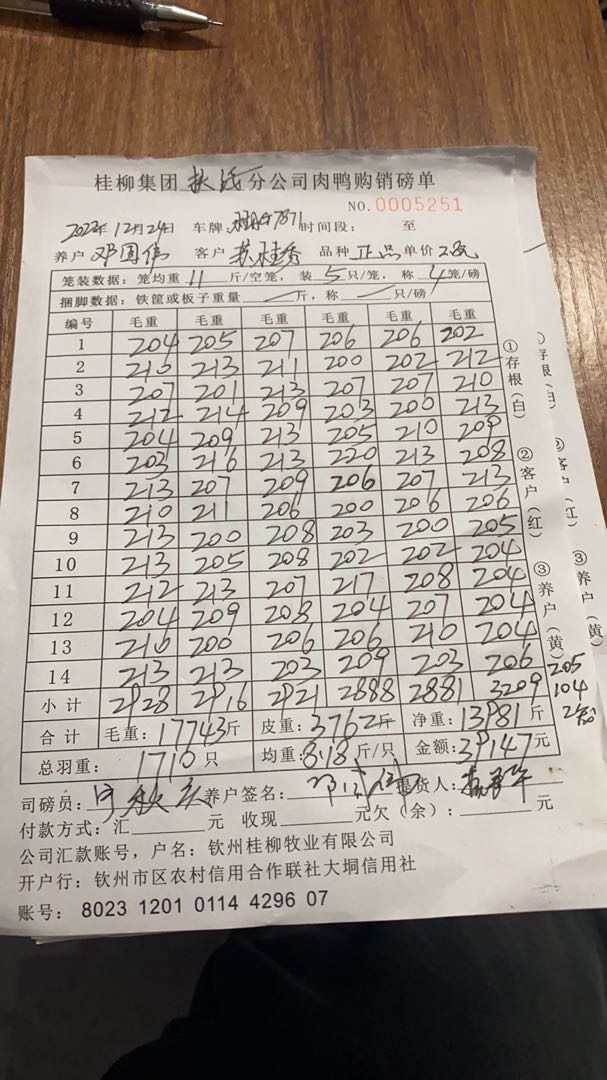 桂柳集团 分公司肉鸭购销磅单
NO.0005251
2022年12月24日 车牌: 7871 时间段: 至
养户 邓国伟 客户 苏桂香 品种 正品 单价 2.80
笼装数据: 笼均重 11 斤/空笼, 装 5 只/笼, 称 4 笼/磅
捆脚数据: 铁筐或板子重量 斤, 称 只/磅
编号 毛重 毛重 毛重 毛重 毛重 毛重
1 204 205 207 206 206 202
2 210 213 211 200 202 212
3 207 201 213 207 207 210
4 212 214 209 203 200 213
5 204 209 213 205 210 209
6 203 216 213 220 213 208
7 213 207 209 206 207 213
8 210 211 206 200 206 206
9 213 200 208 203 200 205
10 213 205 208 202 202 204
11 212 213 207 217 208 204
12 204 209 208 204 207 204
13 210 200 206 206 210 204
14 213 213 203 209 203 206 205
小计 2928 2916 2921 2888 2881 3209 104
合计 毛重: 17743斤 皮重: 3762斤 净重: 13981斤
总羽重: 1710 只 均重: 8.18 斤/只 金额: 39147元
司磅员: 养户签名: 提货人:
付款方式: 汇 元 收现 元欠(余): 元
公司汇款账号, 户名: 钦州桂柳牧业有限公司
开户行: 钦州市区农村信用合作联社大垌信用社
账号: 8023 1201 0114 4296 07
①存根(白) ②客户(红) ③养户(黄)